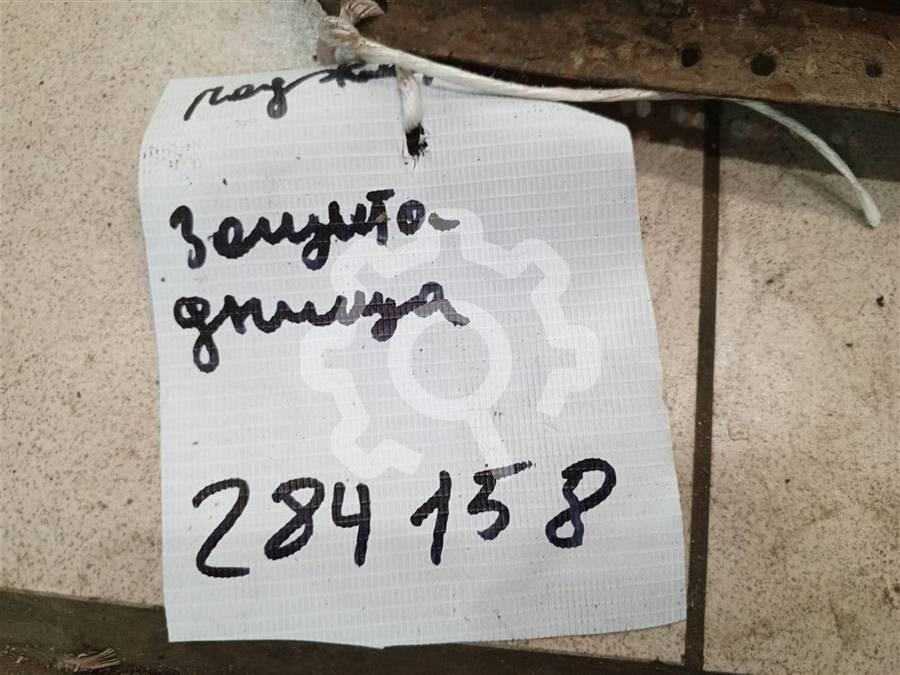 Защита
днища
284158